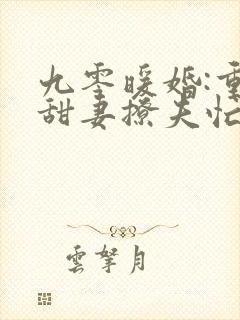 九零暖婚:重
甜妻撩夫忙
雲拏月